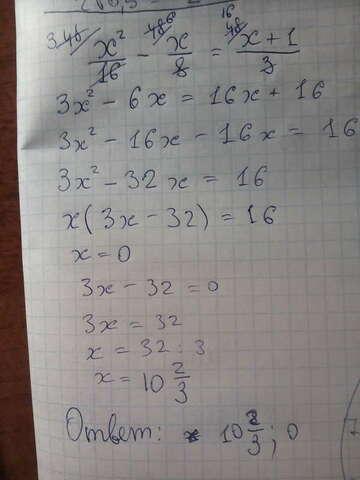 3\48 x²/16 - 48\6 x/8 = 48\16 x+1/3
3x² - 6x = 16x + 16
3x² - 16x - 16x = 16
3x² - 32x = 16
x(3x - 32) = 16
x = 0
3x - 32 = 0
3x = 32
x = 32 : 3
x = 10 2/3
Ответ: 10 2/3; 0